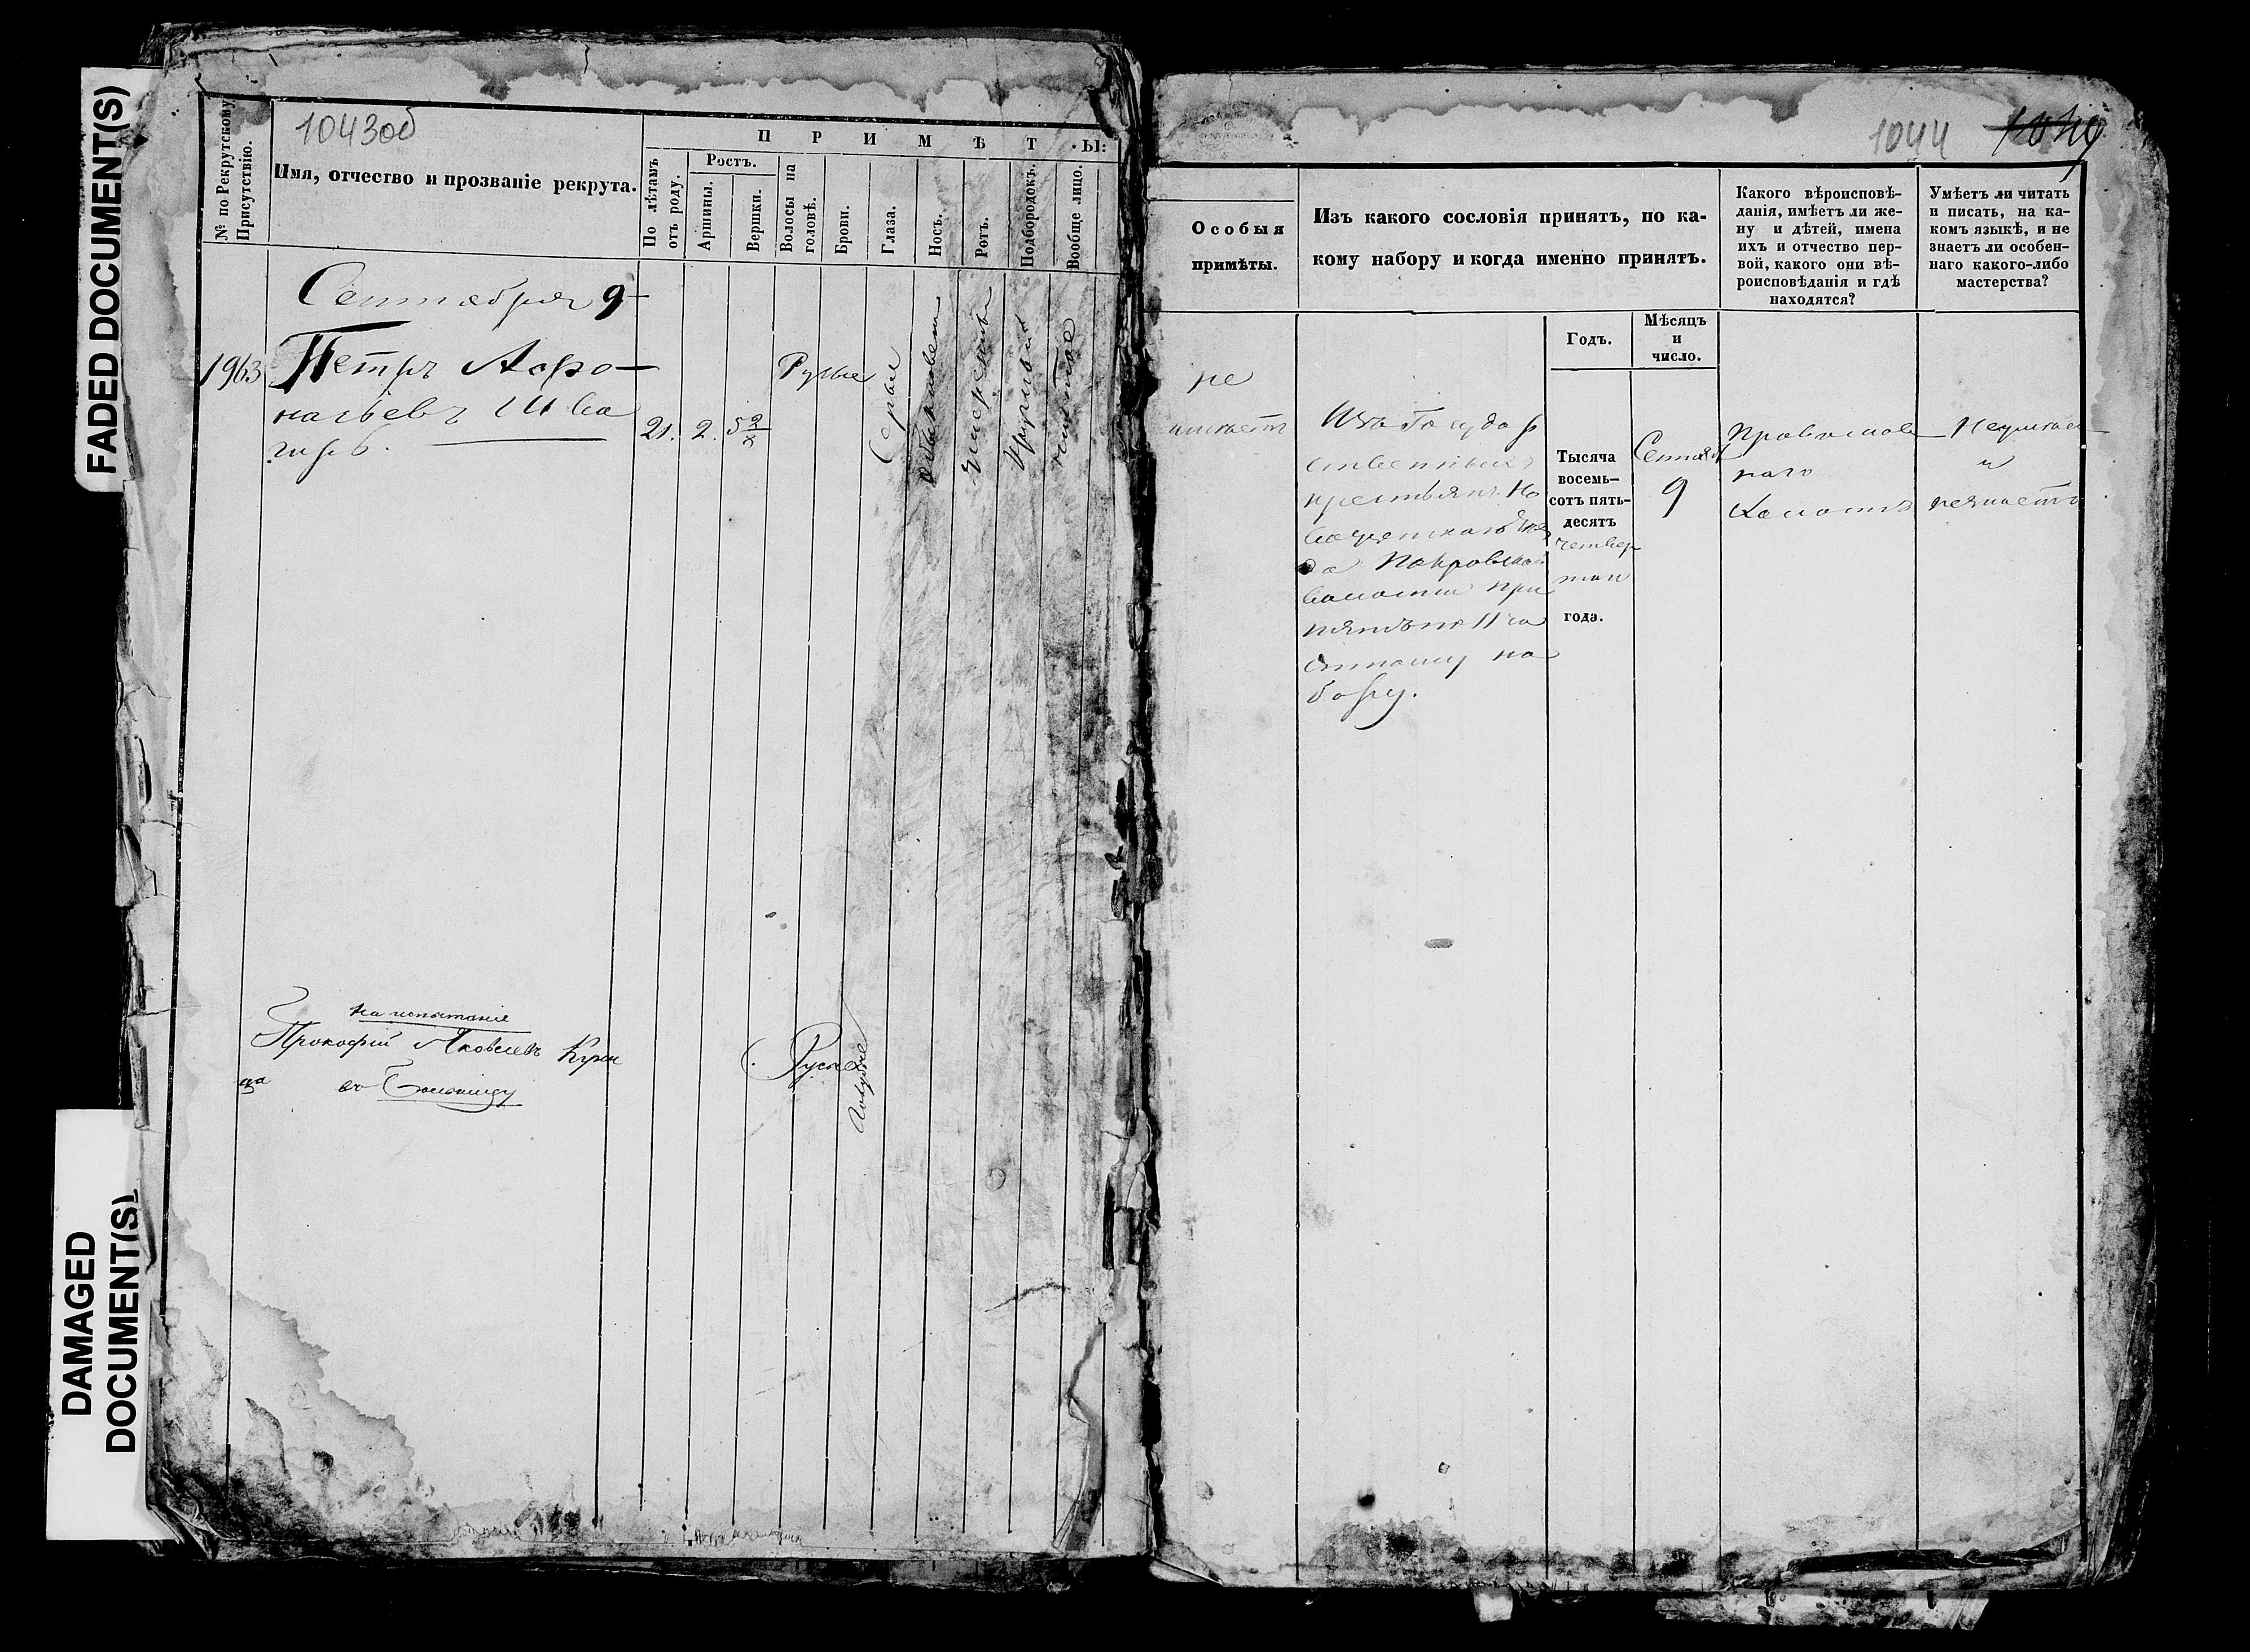 FADED DOCUMENT(S)
DAMAGED
DOCUMENT(S)
1043об
№ по Рекрутскому
Присутствію.
Имя, отчество и прозваніе рекрута.
ПРИМѢТЫ:
По лѣтамъ
отъ роду.
Ростъ.
Аршины.
Вершки.
Волосы на
головѣ.
Брови.
Глаза.
Носъ.
Ротъ.
Подбородокъ.
Вообще лицо.
Сентября 9
1963
Петръ Афо-
насьевъ Шва
гирь
21. 2. 5 2/x
Русые
Серые
обыкновен
умеренный
круглый
чистое
на испытанія
Прокофій Яковлевъ
въ больницу
Русые
голубые
1044
Особыя
примѣты.
Изъ какого сословія принятъ, по ка-
кому набору и когда именно принятъ.
Какого вѣроисповѣ-
данія, имѣетъ ли же-
ну и дѣтей, имена
ихъ и отчество пер-
вой, какого они вѣ-
роисповѣданія и гдѣ
находятся?
Умѣетъ ли читать
и писать, на ка-
комъ языкѣ, и не
знаетъ ли особен-
наго какого-либо
мастерства?
Годъ.
Мѣсяцъ
и
число.
не
имеетъ
Изъ Государ
ственныхъ
крестьянъ Но
да Покровской
волости при
нятъ по 11 ча
стному на
бору.
Тысяча
восемь-
сотъ пять-
десятъ
четвер
таго
года.
Сентяб
9
Православ
наго
Холостъ
Неумѣет
и
незнаетъ